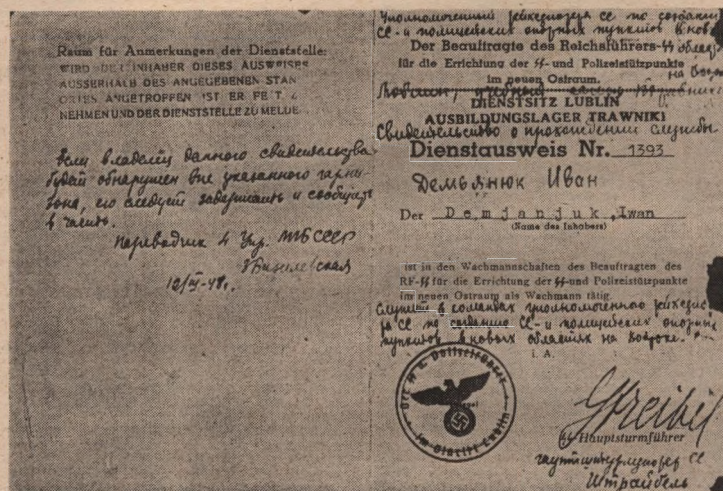 Raum für Anmerkungen der Dienststelle:
WIRD DER INHABER DIESES AUSWEISES
AUSSERHALB DES ANGEGEBENEN STAN
ORTES ANGETROFFEN IST ER FEST
NEHMEN UND DER DIENSTSTELLE ZU MELDE
Если владелец данного свидетельства
будет обнаружен вне указанного гарни-
зона, его следует задержать и сообщить
в часть.
Переводчик 4 Упр. МГБ СССР
12/III-48г.
Уполномоченный рейхсфюрера СС по созданию
СС-и полицейских опорных пунктов в новых
Der Beauftragte des Reichsführers-SS
für die Errichtung der SS- und Polizeistützpunkte
im neuen Ostraum.
на Востоке
Люблин, учебный
DIENSTSITZ LUBLIN
AUSBILDUNGSLAGER TRAWNIKI
Свидетельство о прохождении службы
Dienstausweis Nr. 1393
Демьянюк Иван
Der Demjanjuk, Iwan
(Name des Inhabers)
ist in den Wachmannschaften des Beauftragten des
RF-SS für die Errichtung der SS-und Polizeistützpunkte
im neuen Ostraum als Wachmann tätig.
Служит в командах уполномоченного рейхсфюре-
ра СС по созданию СС-и полицейских опорных
пунктов в новых областях на Востоке.
i. A.
Der SS u. Polizeiführer
im Distrikt Lublin
Streibel
SS Hauptsturmführer
гауптштурмфюрер СС
Штрайбель